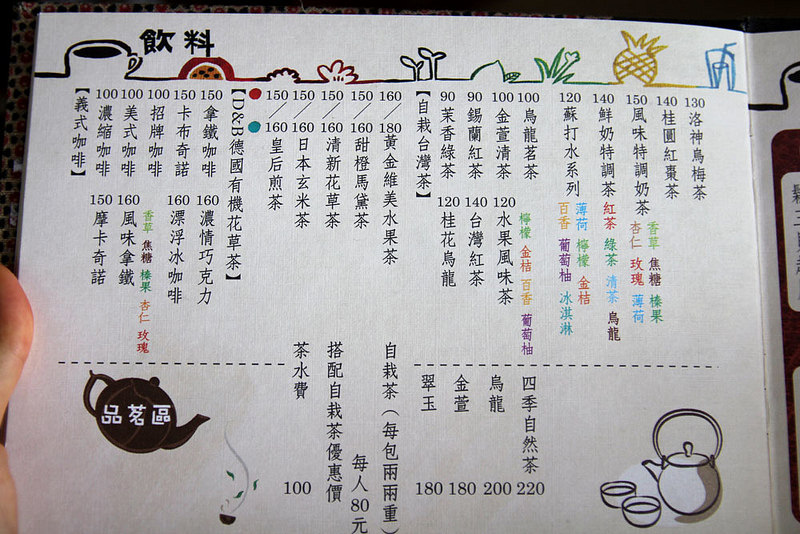 飲料
【義式咖啡】
100 濃縮咖啡
100 美式咖啡
100 招牌咖啡
150 卡布奇諾
150 拿鐵咖啡
150 摩卡奇諾
160 風味拿鐵
香草 焦糖 榛果 杏仁 玫瑰
160 漂浮冰咖啡
160 濃情巧克力
【D&B德國有機花草茶】
150/160 皇后煎茶
150/160 日本玄米茶
150/160 清新花草茶
150/160 甜橙馬黛茶
160/180 黃金維美水果茶
【自栽台灣茶】
90 茉香綠茶
90 錫蘭紅茶
100 金萱清茶
100 烏龍茗茶
120 桂花烏龍
140 台灣紅茶
120 水果風味茶
檸檬 金桔 百香 葡萄柚
120 蘇打水系列
百香 葡萄柚 冰淇淋
薄荷 檸檬 金桔
140 鮮奶特調茶
紅茶 綠茶 清茶 烏龍
150 風味特調奶茶
杏仁 玫瑰 薄荷
香草 焦糖 榛果
140 桂圓紅棗茶
130 洛神烏梅茶
品茗區
茶水費 100
搭配自栽茶優惠價
每人80元
自栽茶（每包兩兩重）
翠玉 180
金萱 180
烏龍 200
四季自然茶 220